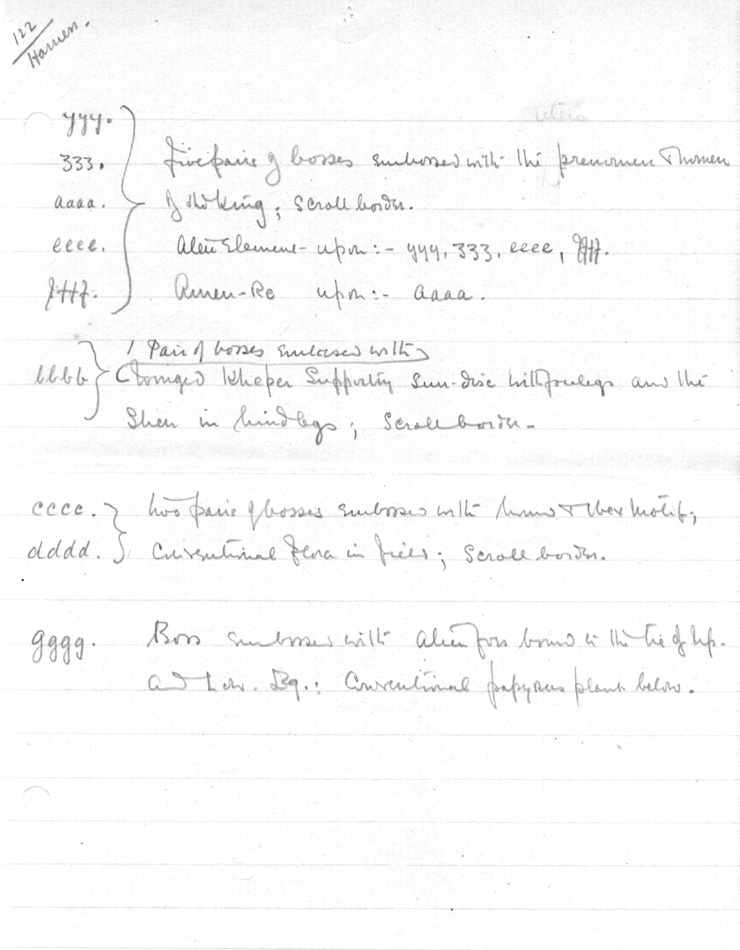 122
Harness.
yyy.
zzz. Five pairs of bosses embossed with the prenomen & nomen
aaaa. of the King; Scroll border.
eeee. Aten Element - upon:- yyy, zzz, eeee, ffff.
ffff. Amen-Re upon:- aaaa.
1 Pair of bosses embossed with
bbbb (Winged Kheper Supporting Sun-disc with forelegs and the
Shen in hind legs; Scroll border -
cccc. two pairs of bosses embossed with hound & Ibex Motif;
dddd. Conventional flora in field; Scroll border.
gggg. Boss embossed with alien foes bound to the tie of Up.
and Low. Eg.: Conventional papyrus plant below.